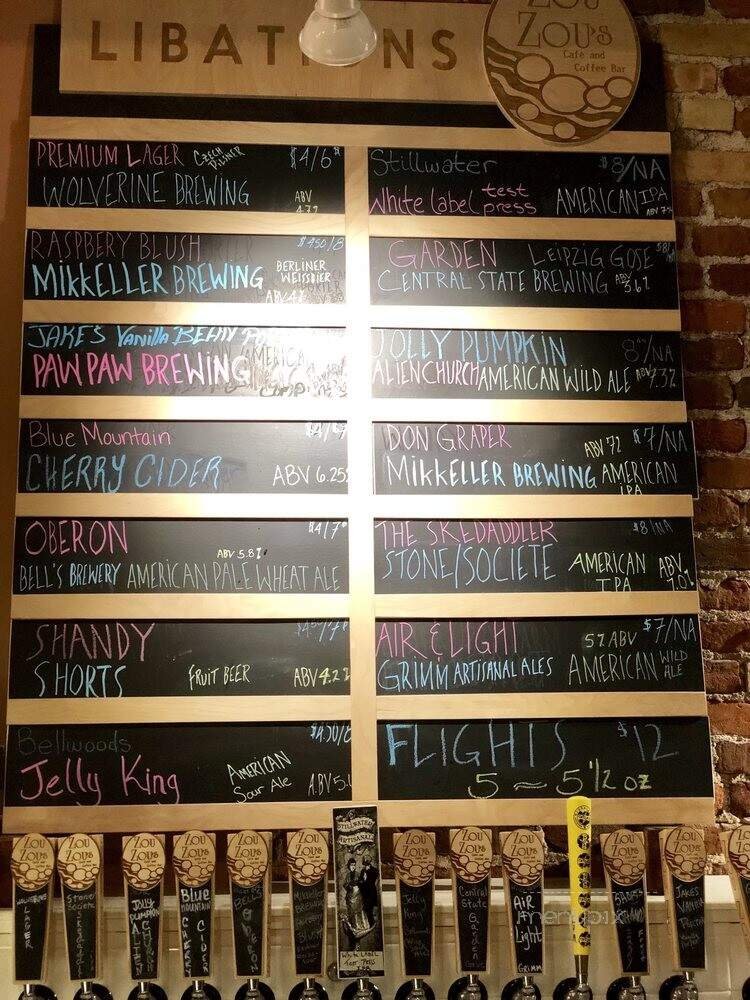 LIBATIONS
ZOU
ZOU'S
Café and
Coffee Bar
PREMIUM LAGER CZECH PILSNER $4/6
WOLVERINE BREWING ABV 4.7%
RASPBERY BLUSH $450/8
MIKKELLER BREWING BERLINER WEISSBIER ABV 4%
JAKE'S Vanilla
PAW PAW BREWING AMERICAN
Blue Mountain
CHERRY CIDER ABV 6.25%
OBERON $4/7
ABV 5.8%
BELL'S BREWERY AMERICAN PALE WHEAT ALE
SHANDY
SHORTS FRUIT BEER ABV 4.2%
Bellwoods $4.50/8
Jelly King AMERICAN Sour Ale ABV 5.
Stillwater $8/NA
White label test press AMERICAN IPA ABV 7%
GARDEN LEIPZIG GOSE
CENTRAL STATE BREWING ABV 5.6%
JOLLY PUMPKIN 8/NA
ALIEN CHURCH AMERICAN WILD ALE ABV 7.3%
DON GRAPER ABV 7% $7/NA
MIKKELLER BREWING AMERICAN IPA
THE SKEDADDLER $8/NA
STONE/SOCIETE AMERICAN IPA ABV 7.0%
AIR & LIGHT 5% ABV $7/NA
GRIMM ARTISANAL ALES AMERICAN WILD ALE
FLIGHTS $12
5 ~ 5 1/2 oz
ZOU ZOU'S
LAGER
ZOU ZOU'S
Stone
Societe
ZOU ZOU'S
JOLLY
PUMPKIN
ALIEN
CHURCH
ZOU ZOU'S
Blue
MOUNTAIN
CHERRY
CIDER
ZOU ZOU'S
BELL'S
OBERON
ZOU ZOU'S
Mikkeller
STILLWATER
ARTISANAL
White LABEL
Test Press
IPA
ZOU ZOU'S
Jelly
King
ZOU ZOU'S
Central
State
Garden
ZOU ZOU'S
AIR
&
Light
GRIMM
ZOU ZOU'S
ZOU ZOU'S
JAKES
menupix